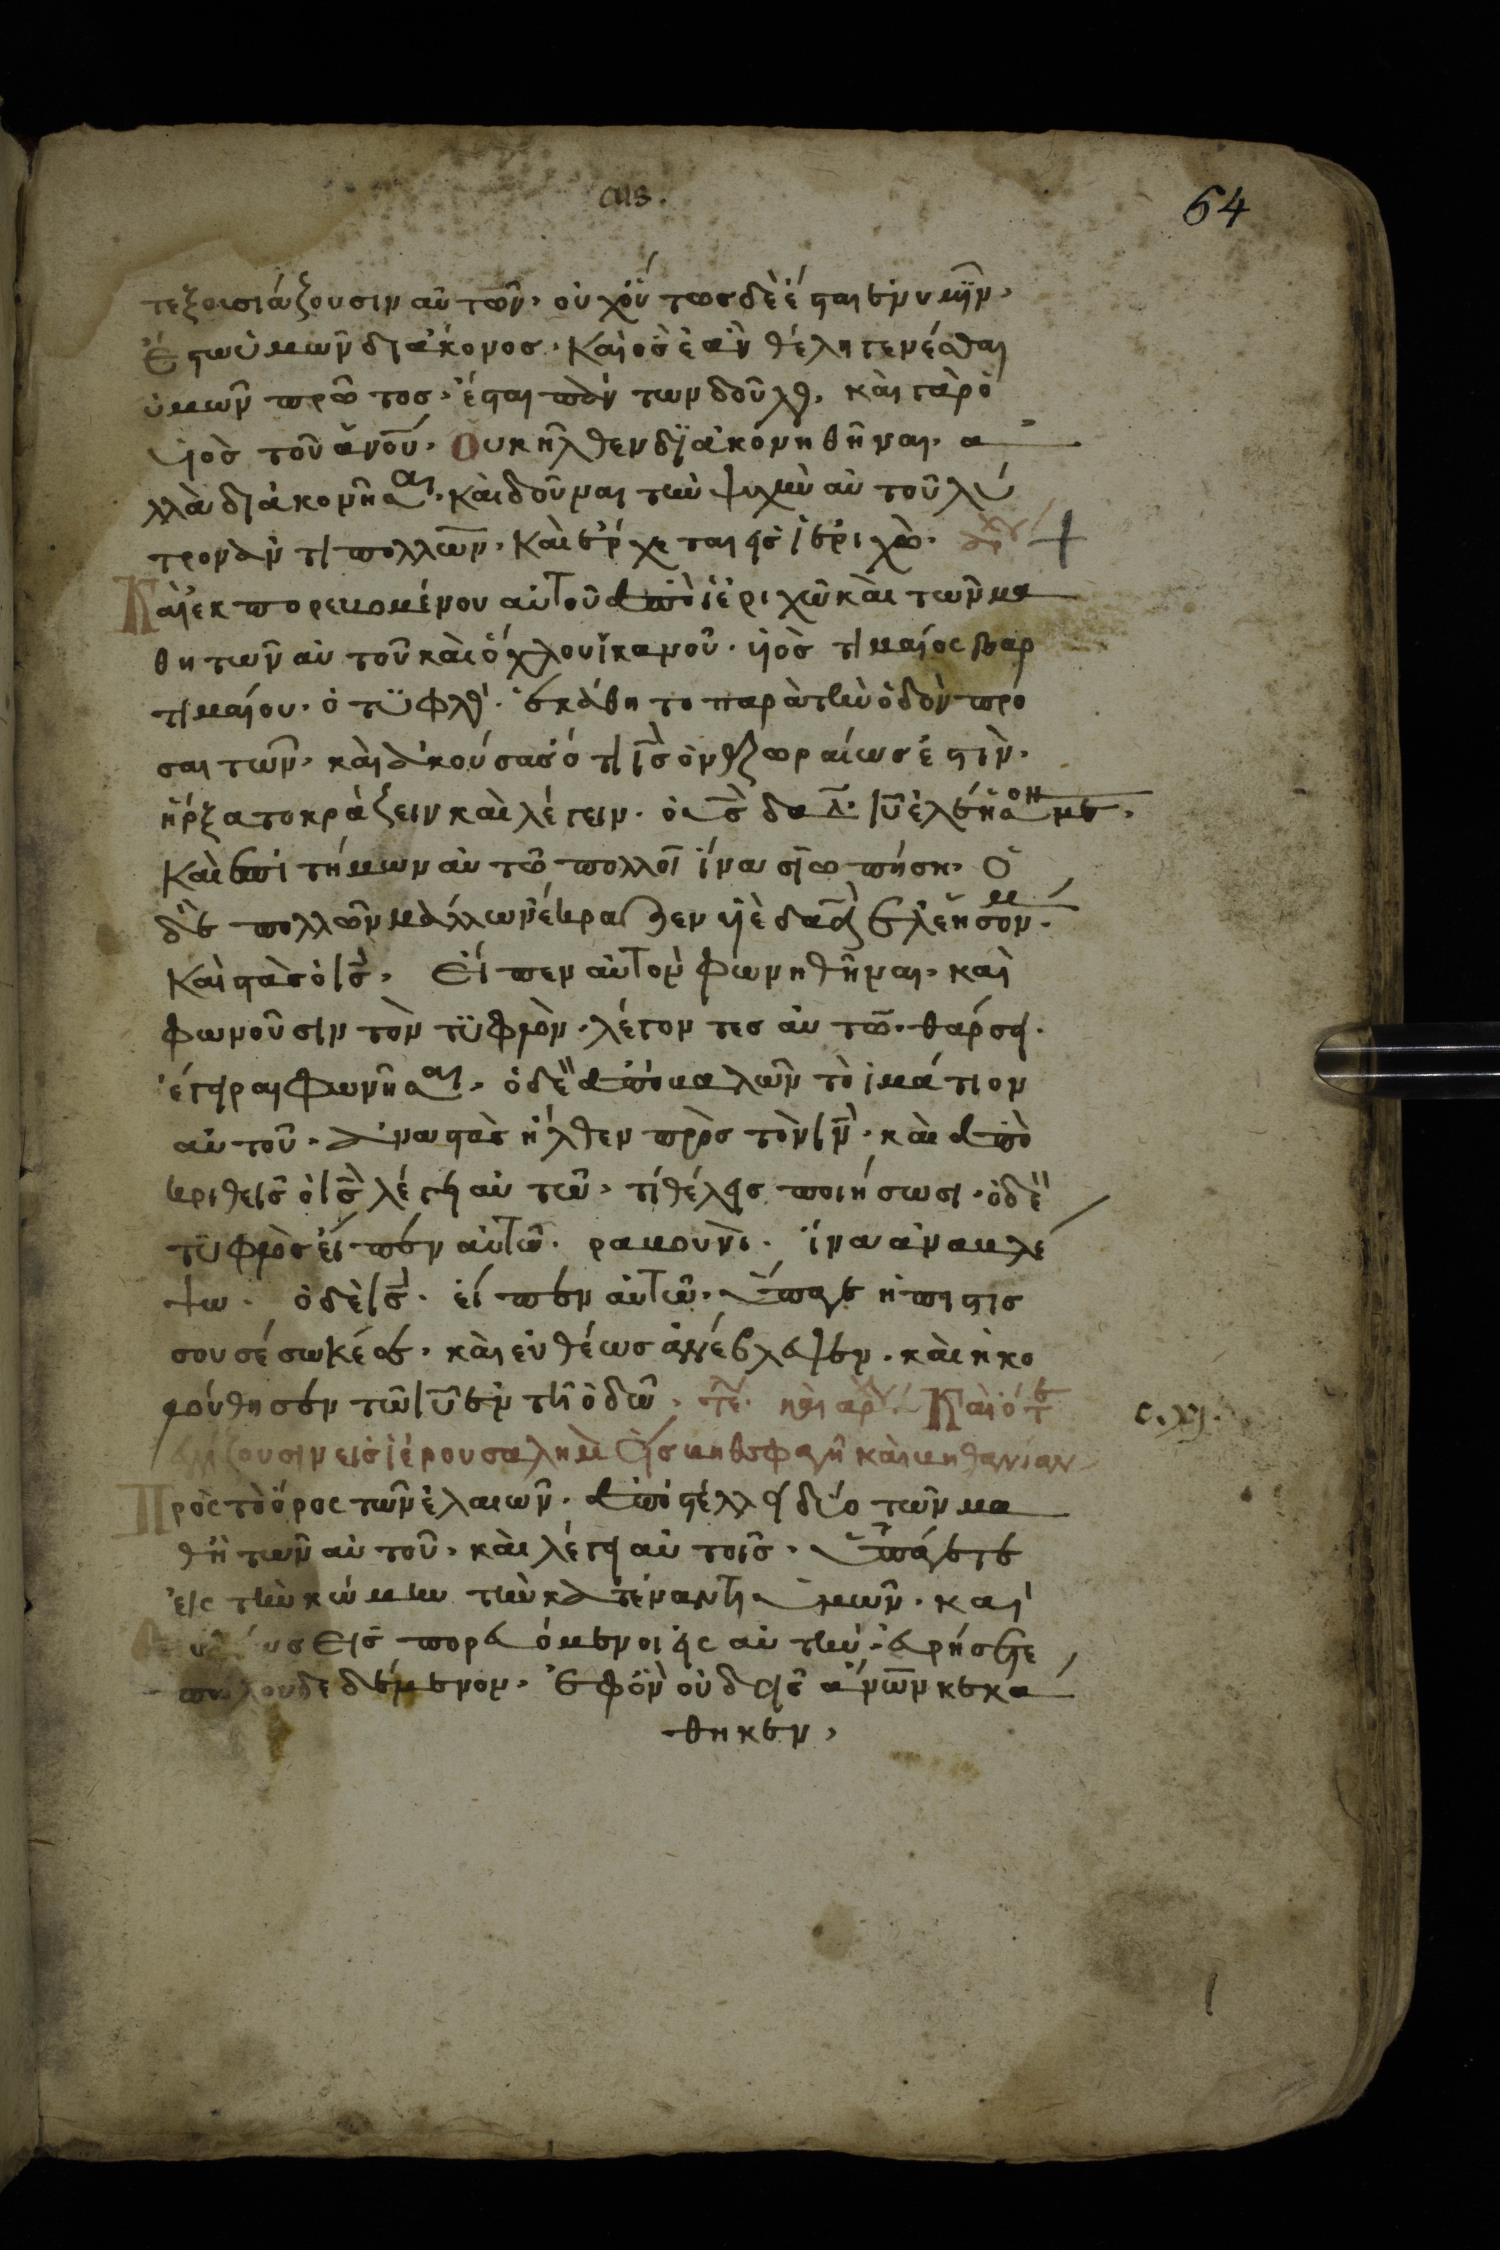 αις.
64
τεξουσιάζουσιν αὐτῶν· οὐχ οὕτως δὲ ἔσται ἐν ὑμῖν·
ἔστω ὑμῶν διάκονος· Καὶ ὃς ἐὰν θέλη γενέσθαι
ὑμῶν πρῶτος· ἔσται πάντων δοῦλος· καὶ γὰρ ὁ
υἱὸς τοῦ ἀνου· Οὐκ ἦλθεν διακονηθῆναι· ἀ
λλὰ διακονῆσαι· καὶ δοῦναι τὴν ψυχὴν αὐτοῦ λύ
τρον ἀντὶ πολλῶν· Καὶ ἔρχεται εἰς ἱεριχώ·
Καὶ ἐκπορευομένου αὐτοῦ ἀπὸ ἱεριχῶ καὶ τῶν μα
θητῶν αὐτοῦ καὶ ὄχλου ἱκανοῦ· υἱὸς τιμαίος βαρ
τιμαίου· ὁ τυφλὸς· ἐκάθητο παρὰ τὴν ὁδὸν προ
σαιτῶν· καὶ ἀκούσας ὅτι ις ὁ ναζωραίως ἐστὶν·
ἤρξατο κράζειν καὶ λέγειν· ὁ υς δαδ· ιυ ἐλέησον με·
Καὶ ἐπιτήμων αὐτῶ πολλοὶ ἵνα σιωπήση· Ὁ
δὲ πολλῶν μάλλων ἔκραζεν υἱὲ δαδ ἐλέησον μ
Καὶ στὰς ὁ ις· Εἶπεν αὐτὸν φωνηθῆναι· καὶ
φωνοῦσιν τὸν τυφλὸν· λέγοντες αὐτῶ· θάρσει·
ἔγειραι φωνῆσαι· ὁ δὲ ἀποβαλῶν τὸ ἱμάτιον
αὐτοῦ· ἀναστὰς ἦλθεν πρὸς τὸν ιν· καὶ ἀπο
κριθεὶς ὁ ις λέγει αὐτῶ· τί θέλεις ποιήσω σι· ὁ δὲ
τυφλὸς εἶπεν αὐτῶ· ραβουνὶ· ἵνα ἀναβλέ
ψω· ὁ δὲ ις· εἶπεν αὐτῶ· ὕπαγε ἡ πίστις
σου σέσωκέ σε· καὶ εὐθέως ἀνέβλεψεν· καὶ ἠκο
λούθησεν τῶ ιυ ἐν τῆ ὁδῶ· Καὶ ὅτε
ἐγγίζουσιν εἰς ἱερουσαλὴμ Εἰς βηθσφαγῆ καὶ βηθανίαν
c. xj.
Πρὸς τὸ ὄρος τῶν ἐλαιῶν· ἀποστέλλει δύο τῶν μα
θητῶν αὐτοῦ· καὶ λέγει αὐτοῖς· ὑπάγετε
εἰς τὴν κώμην τὴν κατέναντι ὑμῶν· καὶ
εὐθέως εἰσπορευόμενοι εἰς αὐτὴν· εὑρήσετε
πῶλον δεδεμένον· ἐφ ὃν οὐδεὶς ἀνων κεκά
θηκεν·